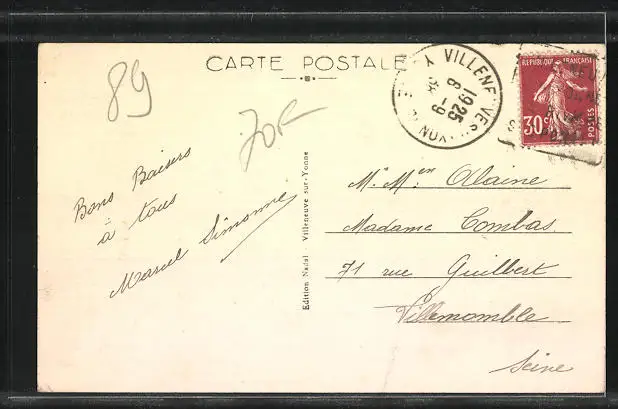 89
CARTE POSTALE
VILLENEUVE
8 - 9
1925
REPUBLIQUE FRANÇAISE
30c
POSTES
Bons Baisers
à tous
Marcel Simonne
Edition Nadal - Villeneuve-sur-Yonne
Mr Men Alaine
Madame Combas
71 rue Guilbert
Villemomble
Seine